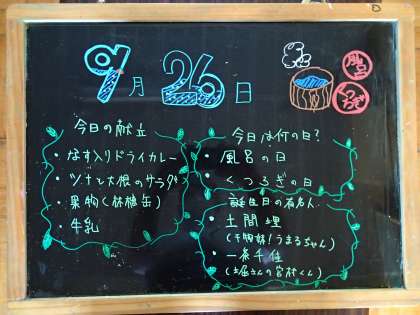 9月26日
風呂
くつろぎ
今日の献立
・なす入りドライカレー
・ツナと大根のサラダ
・果物(林檎缶)
・牛乳
今日は何の日?
・風呂の日
・くつろぎの日
誕生日の有名人
・土間埋
(干物妹!うまるちゃん)
・一条千佳
(土屋さんの宮村くん)